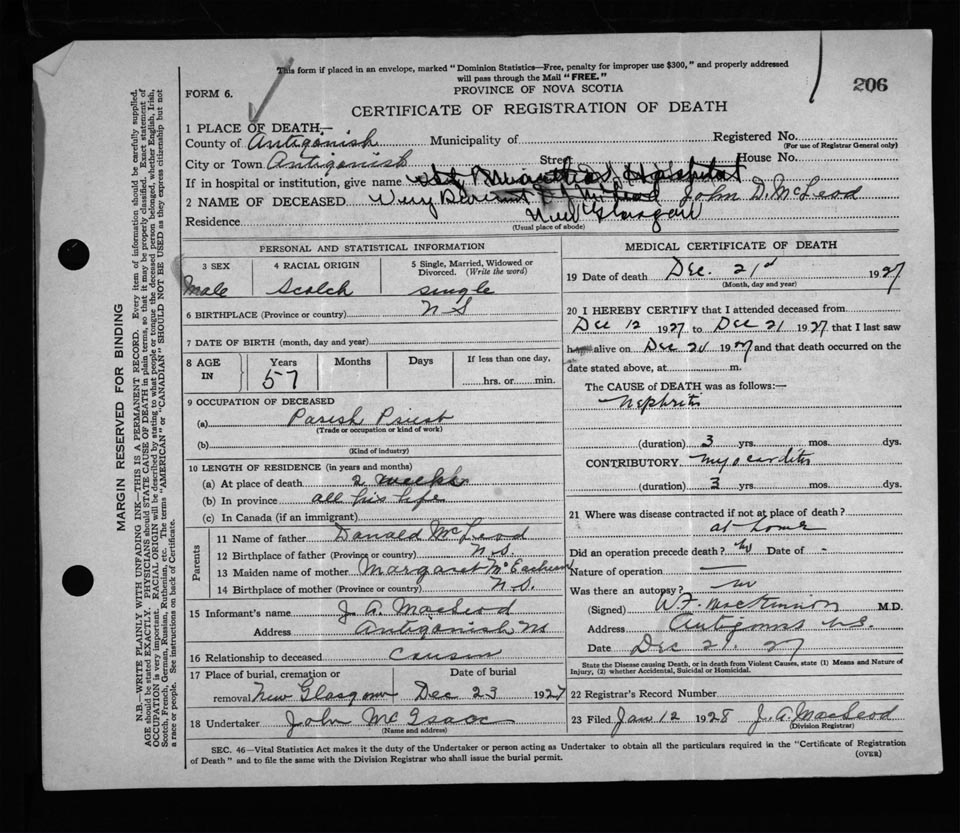 This form if placed in an envelope, marked "Dominion Statistics—Free, penalty for improper use $300," and properly addressed
will pass through the Mail "FREE."
206
FORM 6.
PROVINCE OF NOVA SCOTIA
CERTIFICATE OF REGISTRATION OF DEATH
1 PLACE OF DEATH,—
County of Antigonish Municipality of Registered No.
(For use of Registrar General only)
City or Town Antigonish Street House No.
If in hospital or institution, give name St Martha's Hospital
2 NAME OF DECEASED Very Reverend D J McLeod John D. McLeod
Residence New Glasgow
(Usual place of abode)
PERSONAL AND STATISTICAL INFORMATION
3 SEX 4 RACIAL ORIGIN 5 Single, Married, Widowed or Divorced. (Write the word)
Male Scotch single
6 BIRTHPLACE (Province or country) N S
7 DATE OF BIRTH (month, day and year)
8 AGE IN Years Months Days If less than one day,
57 hrs. or min.
9 OCCUPATION OF DECEASED
(a) Parish Priest
(Trade or occupation or kind of work)
(b)
(Kind of industry)
10 LENGTH OF RESIDENCE (in years and months)
(a) At place of death 2 weeks
(b) In province all his life
(c) In Canada (if an immigrant)
Parents
11 Name of father Donald McLeod
12 Birthplace of father (Province or country) N.S.
13 Maiden name of mother Margaret McEachern
14 Birthplace of mother (Province or country) N.S.
15 Informant's name J. A. MacLeod
Address Antigonish NS
16 Relationship to deceased Cousin
17 Place of burial, cremation or Date of burial
removal New Glasgow Dec 23 1927
18 Undertaker John McIsaac
(Name and address)
MEDICAL CERTIFICATE OF DEATH
19 Date of death Dec. 21st 1927
(Month, day and year)
20 I HEREBY CERTIFY that I attended deceased from
Dec 12 1927 to Dec 21 1927 that I last saw
alive on Dec 20 1927 and that death occurred on the
date stated above, at m.
The CAUSE of DEATH was as follows:—
Nephritis
(duration) 3 yrs. mos. dys.
CONTRIBUTORY Myocarditis
(duration) 3 yrs. mos. dys.
21 Where was disease contracted if not at place of death?
at home
Did an operation precede death? no Date of -
Nature of operation —
Was there an autopsy? no
(Signed) W F MacKinnon M.D.
Address Antigonish N.S.
Date Dec 21. 27
State the Disease causing Death, or in death from Violent Causes, state (1) Means and Nature of
Injury, (2) whether Accidental, Suicidal or Homicidal.
22 Registrar's Record Number
23 Filed Jan 12 1928 J. A. MacLeod
(Division Registrar)
SEC. 46—Vital Statistics Act makes it the duty of the Undertaker or person acting as Undertaker to obtain all the particulars required in the "Certificate of Registration
of Death" and to file the same with the Division Registrar who shall issue the burial permit.
(OVER)
MARGIN RESERVED FOR BINDING
N.B.—WRITE PLAINLY WITH UNFADING INK—THIS IS A PERMANENT RECORD. Every item of information should be carefully supplied.
AGE should be stated EXACTLY. PHYSICIANS should STATE CAUSE OF DEATH in plain terms, so that it may be properly classified. Exact statement of
OCCUPATION is very important. RACIAL ORIGIN will be described by stating to what people or tongue the deceased person belonged, whether English, Irish,
Scotch, French, German, Russian, Ruthenian, etc. The terms "AMERICAN" or "CANADIAN" SHOULD NOT BE USED as they express citizenship but not
a race or people. See instructions on back of Certificate.